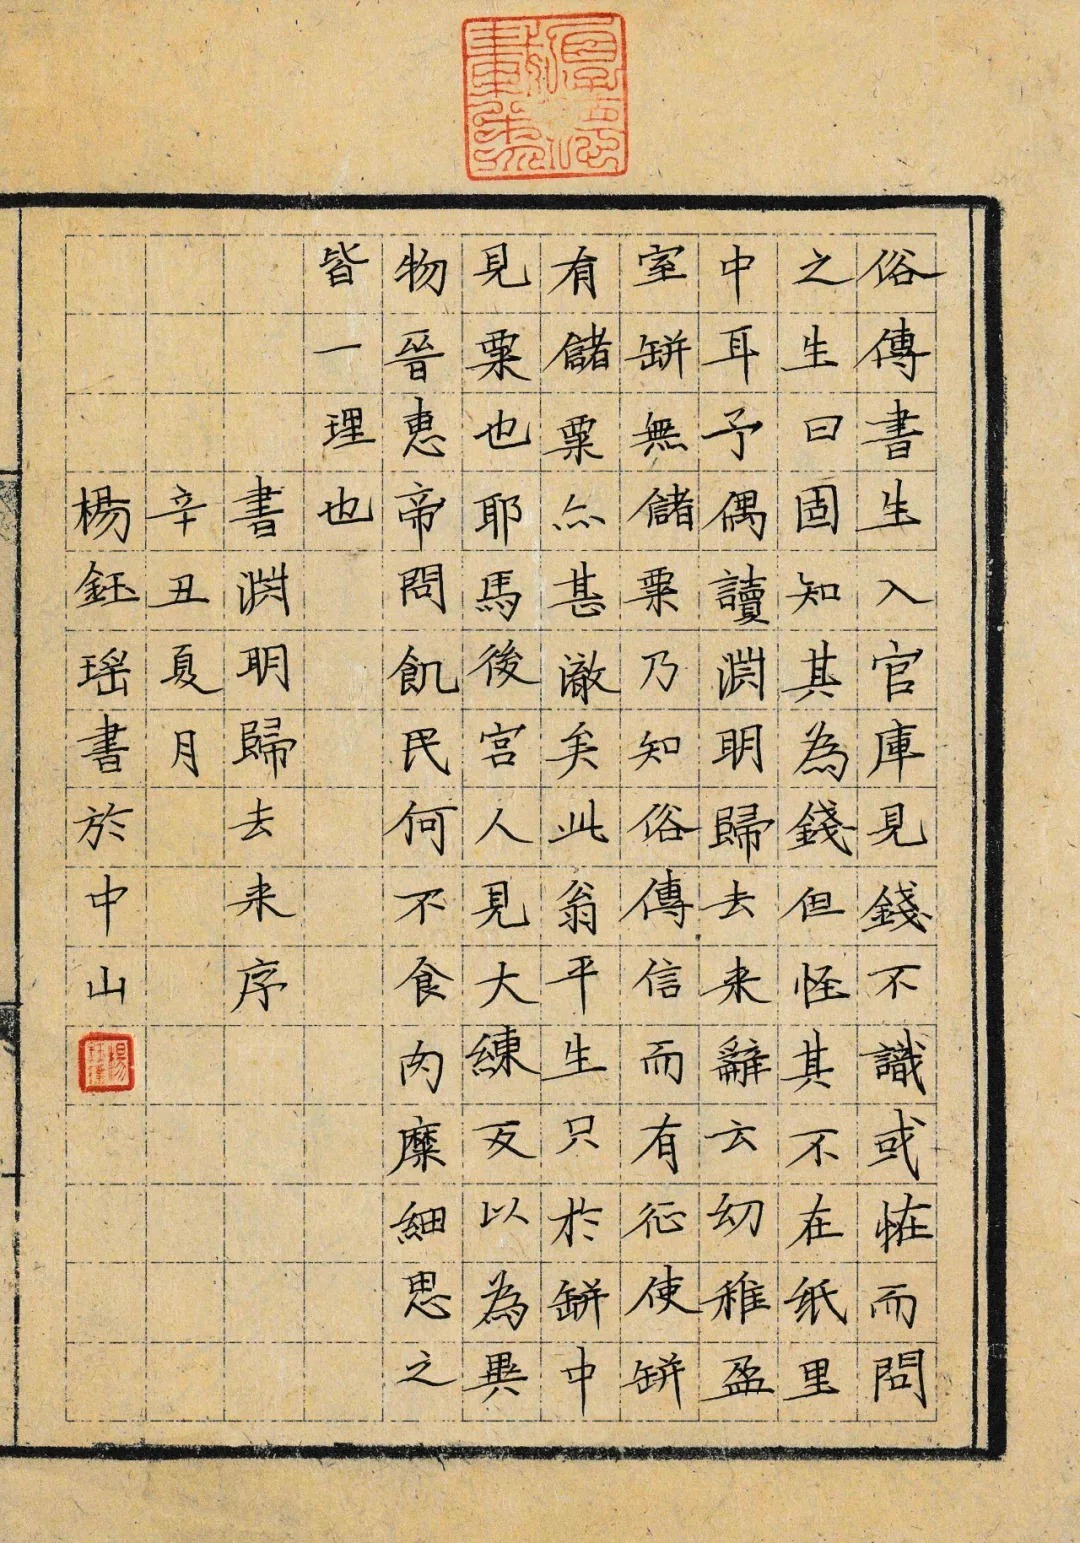 俗傳書生入官庫見錢不識或恠而問
之生曰固知其為錢但怪其不在紙里
中耳予偶讀淵明歸去来辭云幼稚盈
室缾無儲粟乃知俗傳信而有征使缾
有儲粟亦甚微矣此翁平生只於缾中
見粟也耶馬後宮人見大練反以為異
物晉惠帝問飢民何不食肉糜細思之
皆一理也
書淵明歸去来序
辛丑夏月
楊鈺瑤書於中山